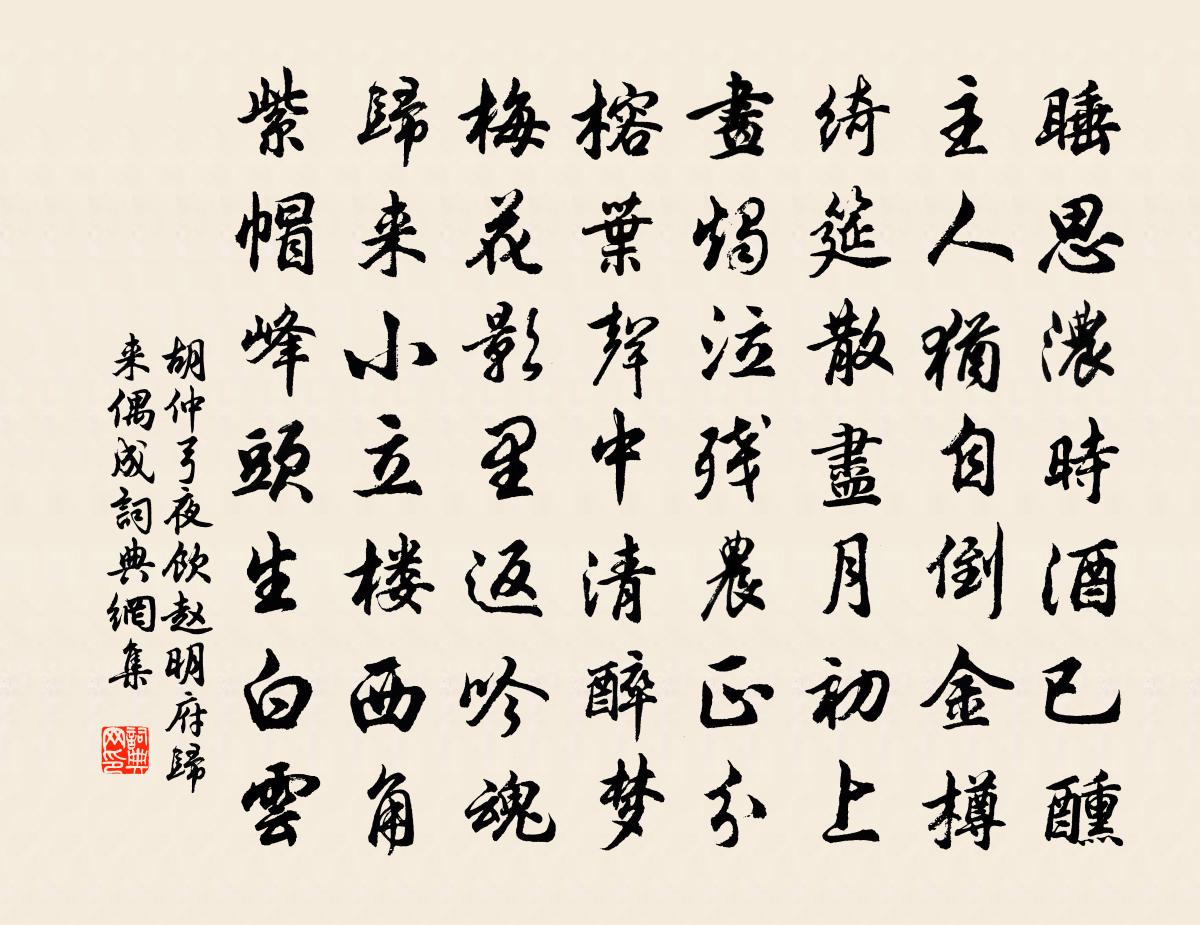 睡思濃時酒已醺
主人猶自倒金樽
綺筵散盡月初上
畫燭泣残農正分
榕葉聲中清醉梦
梅花影里返吟魂
歸来小立楼西角
紫帽峰頭生白雲
胡仲弓夜飲赵明府歸
来偶成詞典網集
詞典
网印